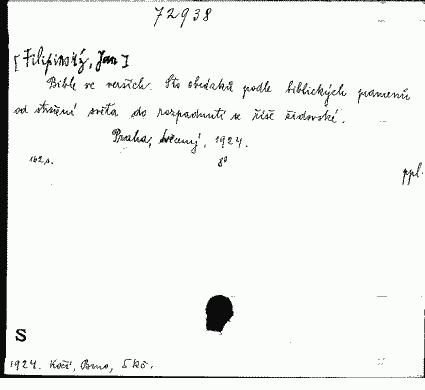 72938
[Filipínský, Jan]
Bible ve verších. Sto obrázků podle biblických pramenů
od stvoření světa do rozpadnutí se říše židovské.
Praha, 1924.
162 s. 8°
ppl.
S
1924. Kočí, Brno, 5 Kč.